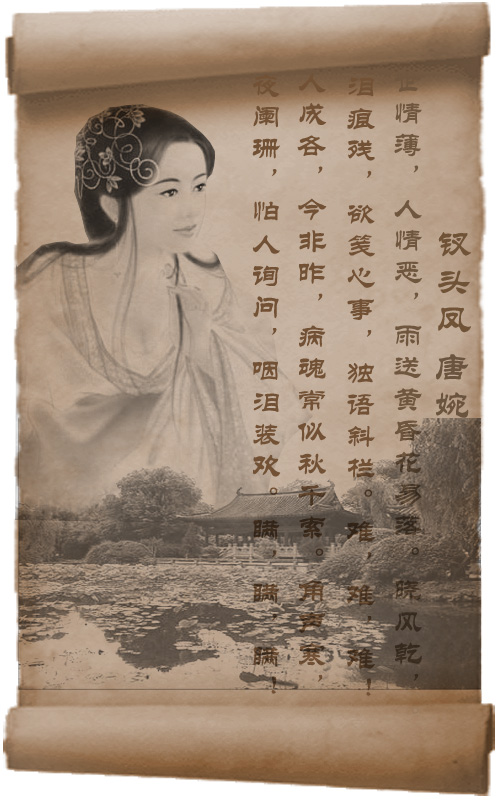 钗头凤 唐婉
世情薄，人情恶，雨送黄昏花易落。晓风乾，
泪痕残，欲笺心事，独语斜栏。难，难，难！
人成各，今非昨，病魂常似秋千索。角声寒，
夜阑珊，怕人询问，咽泪装欢。瞒，瞒，瞒！